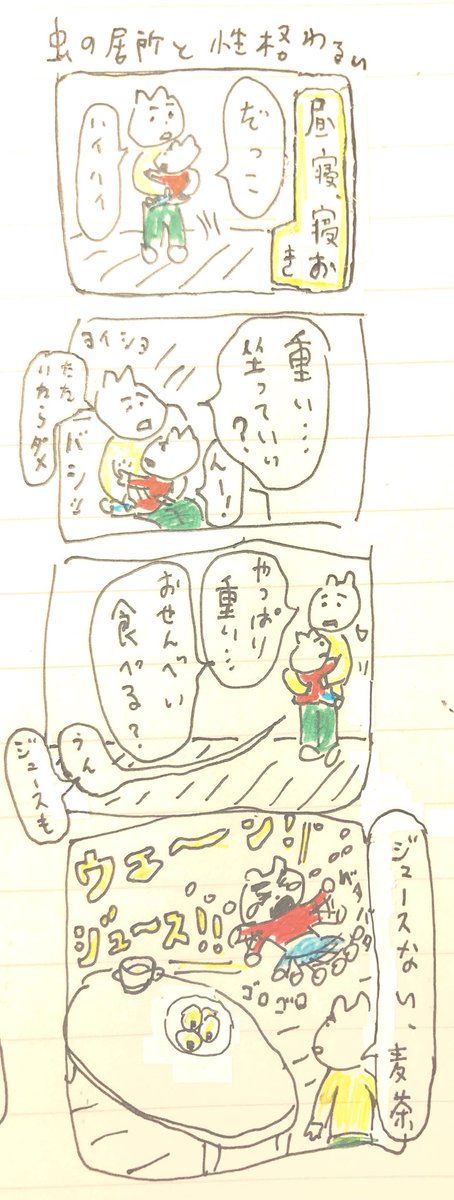 虫の居所と性格わるい
昼寝、寝おき
だっこ
ハイハイ
重い…
坐っていい？
ヨイショ
んー！
バシッ
たたいたらダメ
やっぱり
重い…
おせんべい
食べる？
うん
ジュースも
ジュースない、麦茶
ウェーン！！
ジュース！！
バタバタ
ゴロゴロ